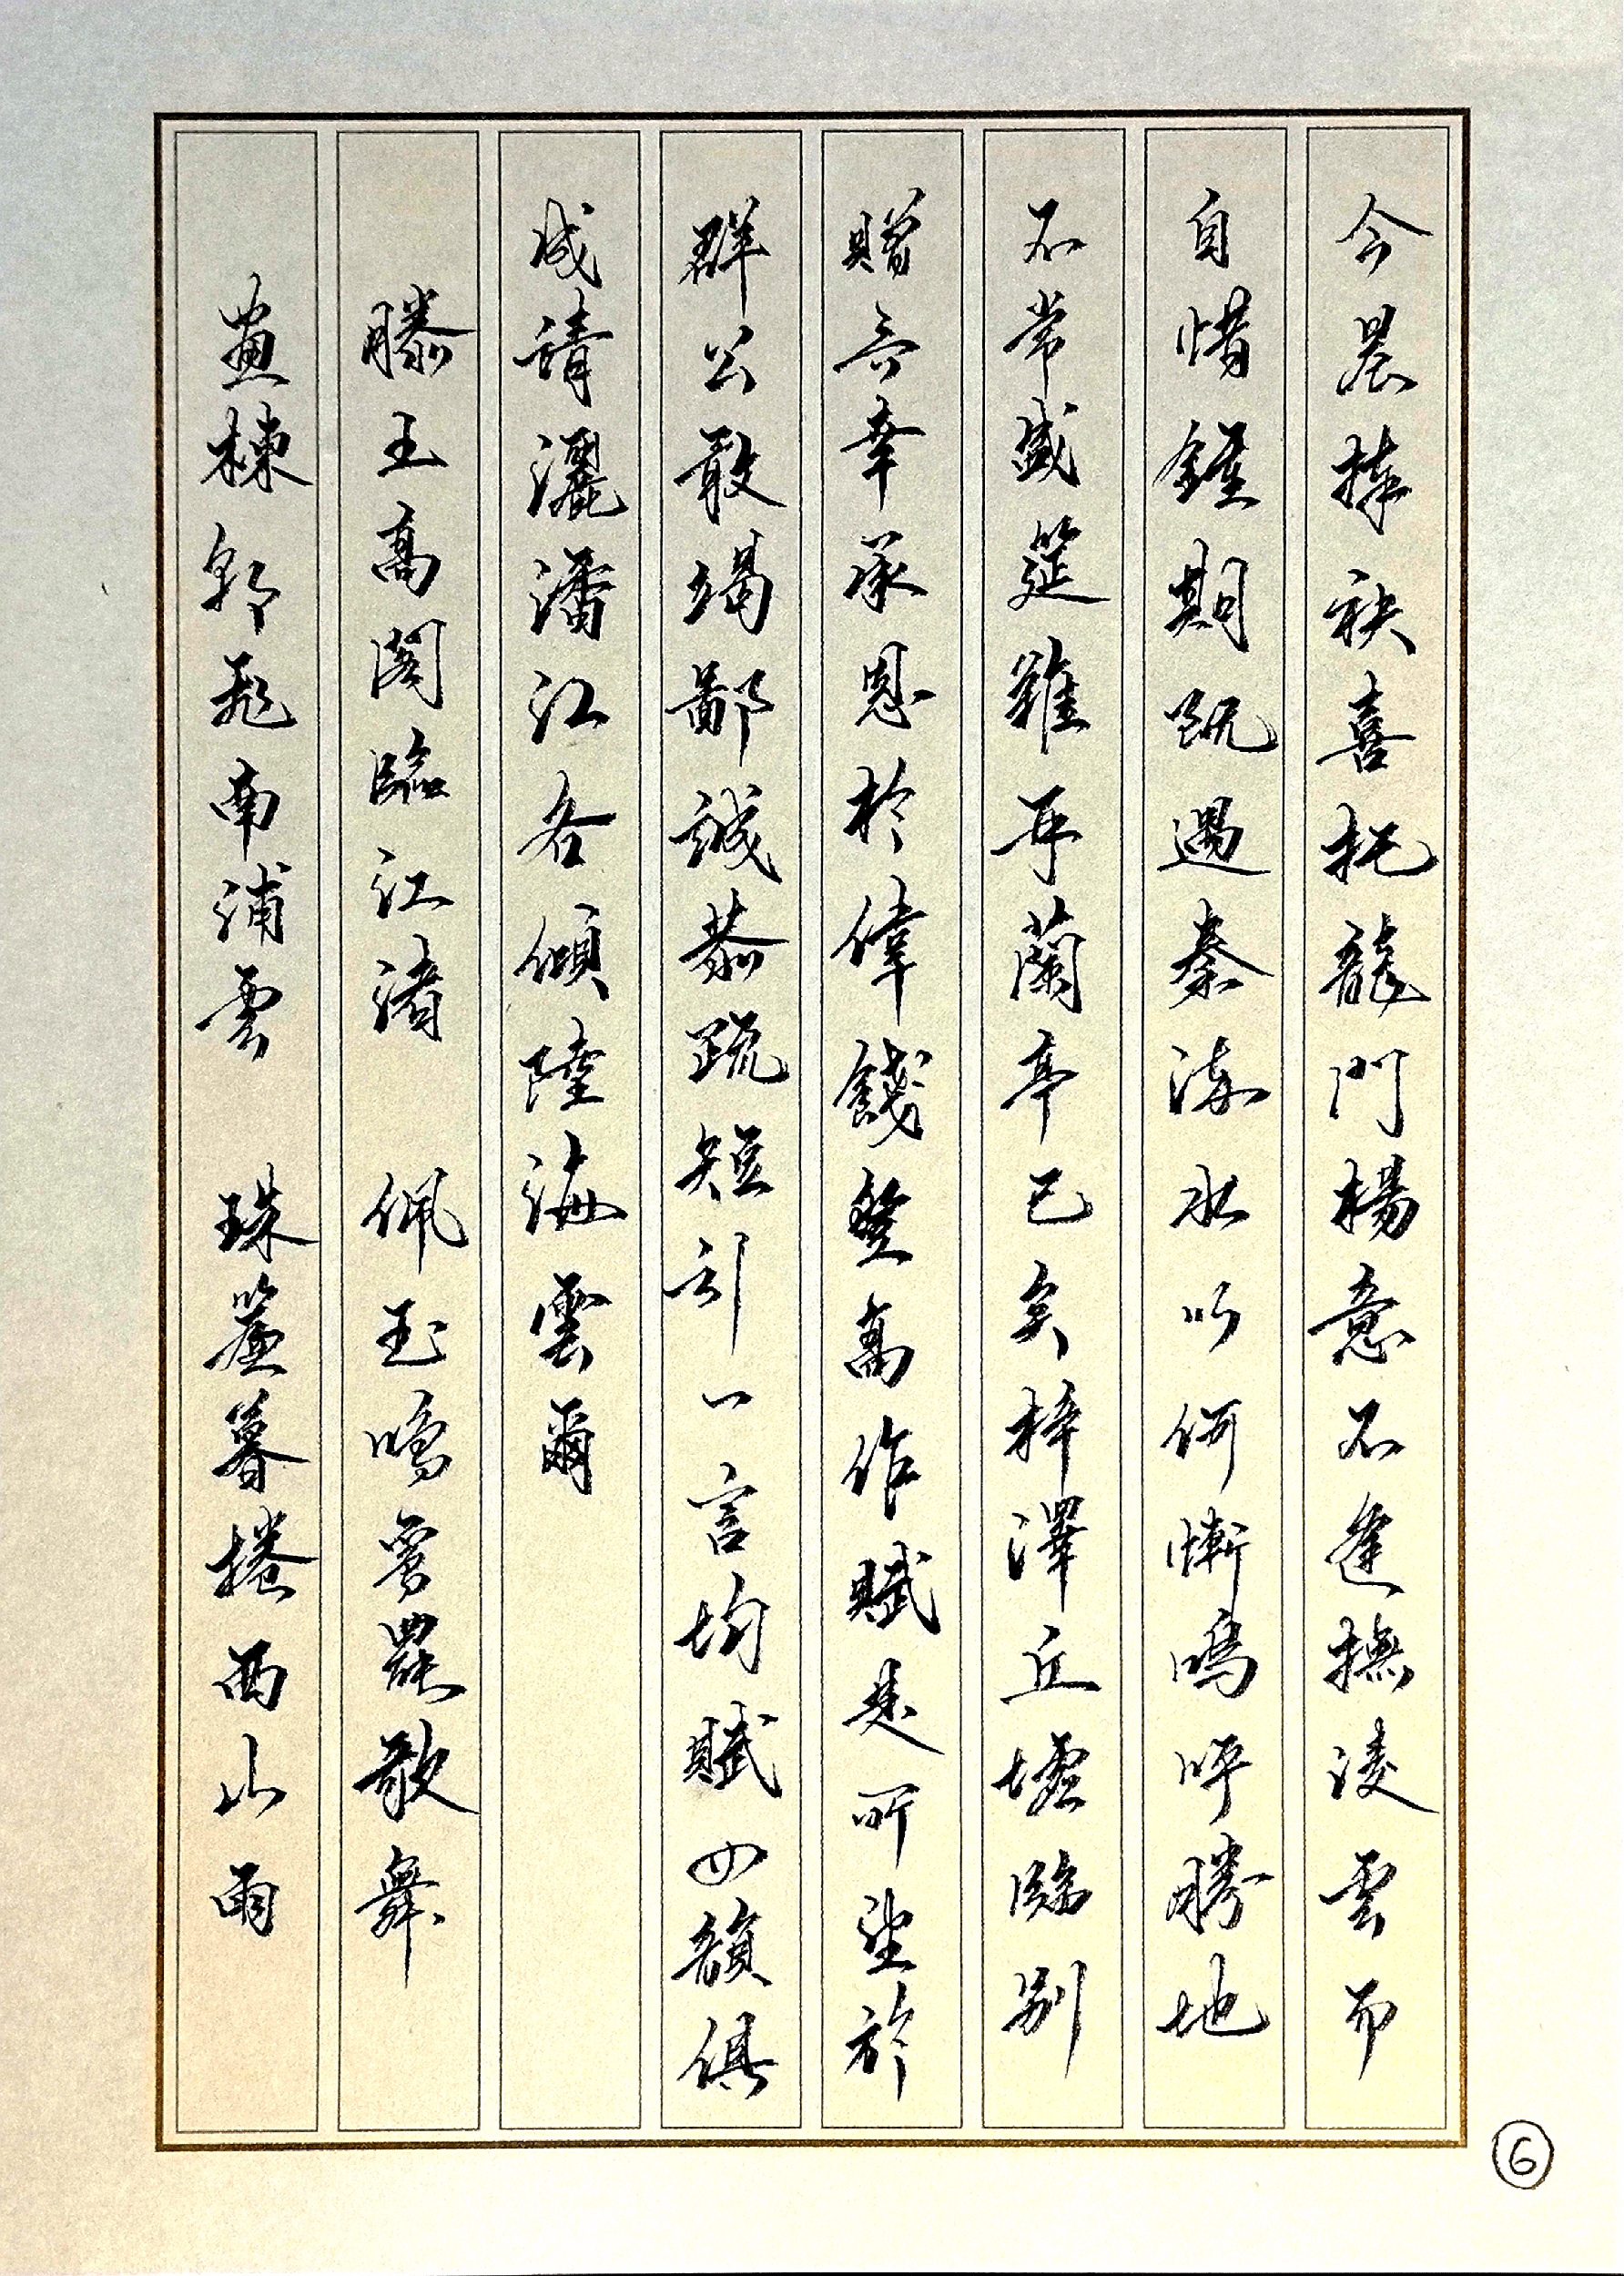 今晨捧袂喜托龍門楊意不逢撫凌雲而
自惜鍾期既遇奏流水以何慚嗚呼勝地
不常盛筵難再蘭亭已矣梓澤丘墟臨別
贈言幸承恩於偉餞登高作賦是所望於
群公敢竭鄙誠恭疏短引一言均賦四韻俱
成請灑潘江各傾陸海雲爾
滕王高閣臨江渚 佩玉鳴鸞罷歌舞
畫棟朝飛南浦雲 珠簾暮捲西山雨
6